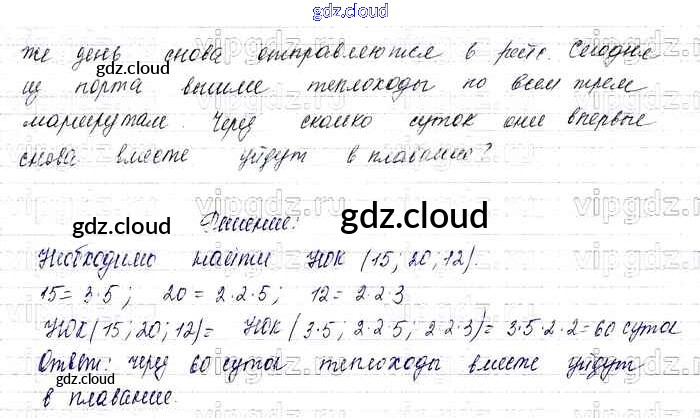 gdz.cloud
же день снова отправляются в рейс. Сегодня
из порта вышли теплоходы по всем трем
маршрутам. Через сколько суток они впервые
снова вместе уйдут в плавание?
Решение:
Необходимо найти НОК (15; 20; 12).
15 = 3·5; 20 = 2·2·5; 12 = 2·2·3
НОК (15; 20; 12) = НОК (3·5; 2·2·5; 2·2·3) = 3·5·2·2 = 60 суток
Ответ: через 60 суток теплоходы вместе уйдут
в плавание.
gdz.cloud
gdz.cloud
gdz.cloud
gdz.cloud
gdz.cloud
gdz.cloud